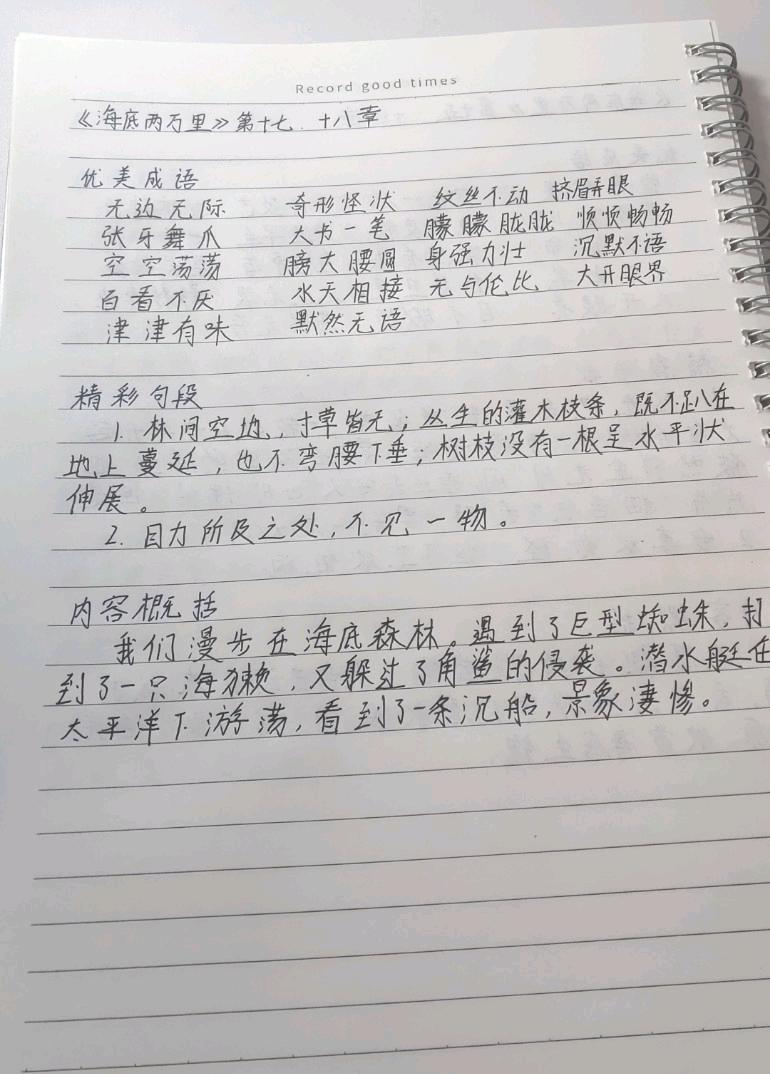 Record good times
《海底两万里》第十七、十八章
优美成语
无边无际 奇形怪状 纹丝不动 挤眉弄眼
张牙舞爪 大书一笔 朦朦胧胧 顺顺畅畅
空空荡荡 膀大腰圆 身强力壮 沉默不语
百看不厌 水天相接 无与伦比 大开眼界
津津有味 默然无语
精彩句段
1. 林间空地，寸草皆无；丛生的灌木枝条，既不趴在
地上蔓延，也不弯腰下垂；树枝没有一根呈水平状
伸展。
2. 目力所及之处，不见一物。
内容概括
我们漫步在海底森林。遇到了巨型蜘蛛，打
到了一只海獭，又躲过了角鲨的侵袭。潜水艇在
太平洋下游荡，看到了一条沉船，景象凄惨。